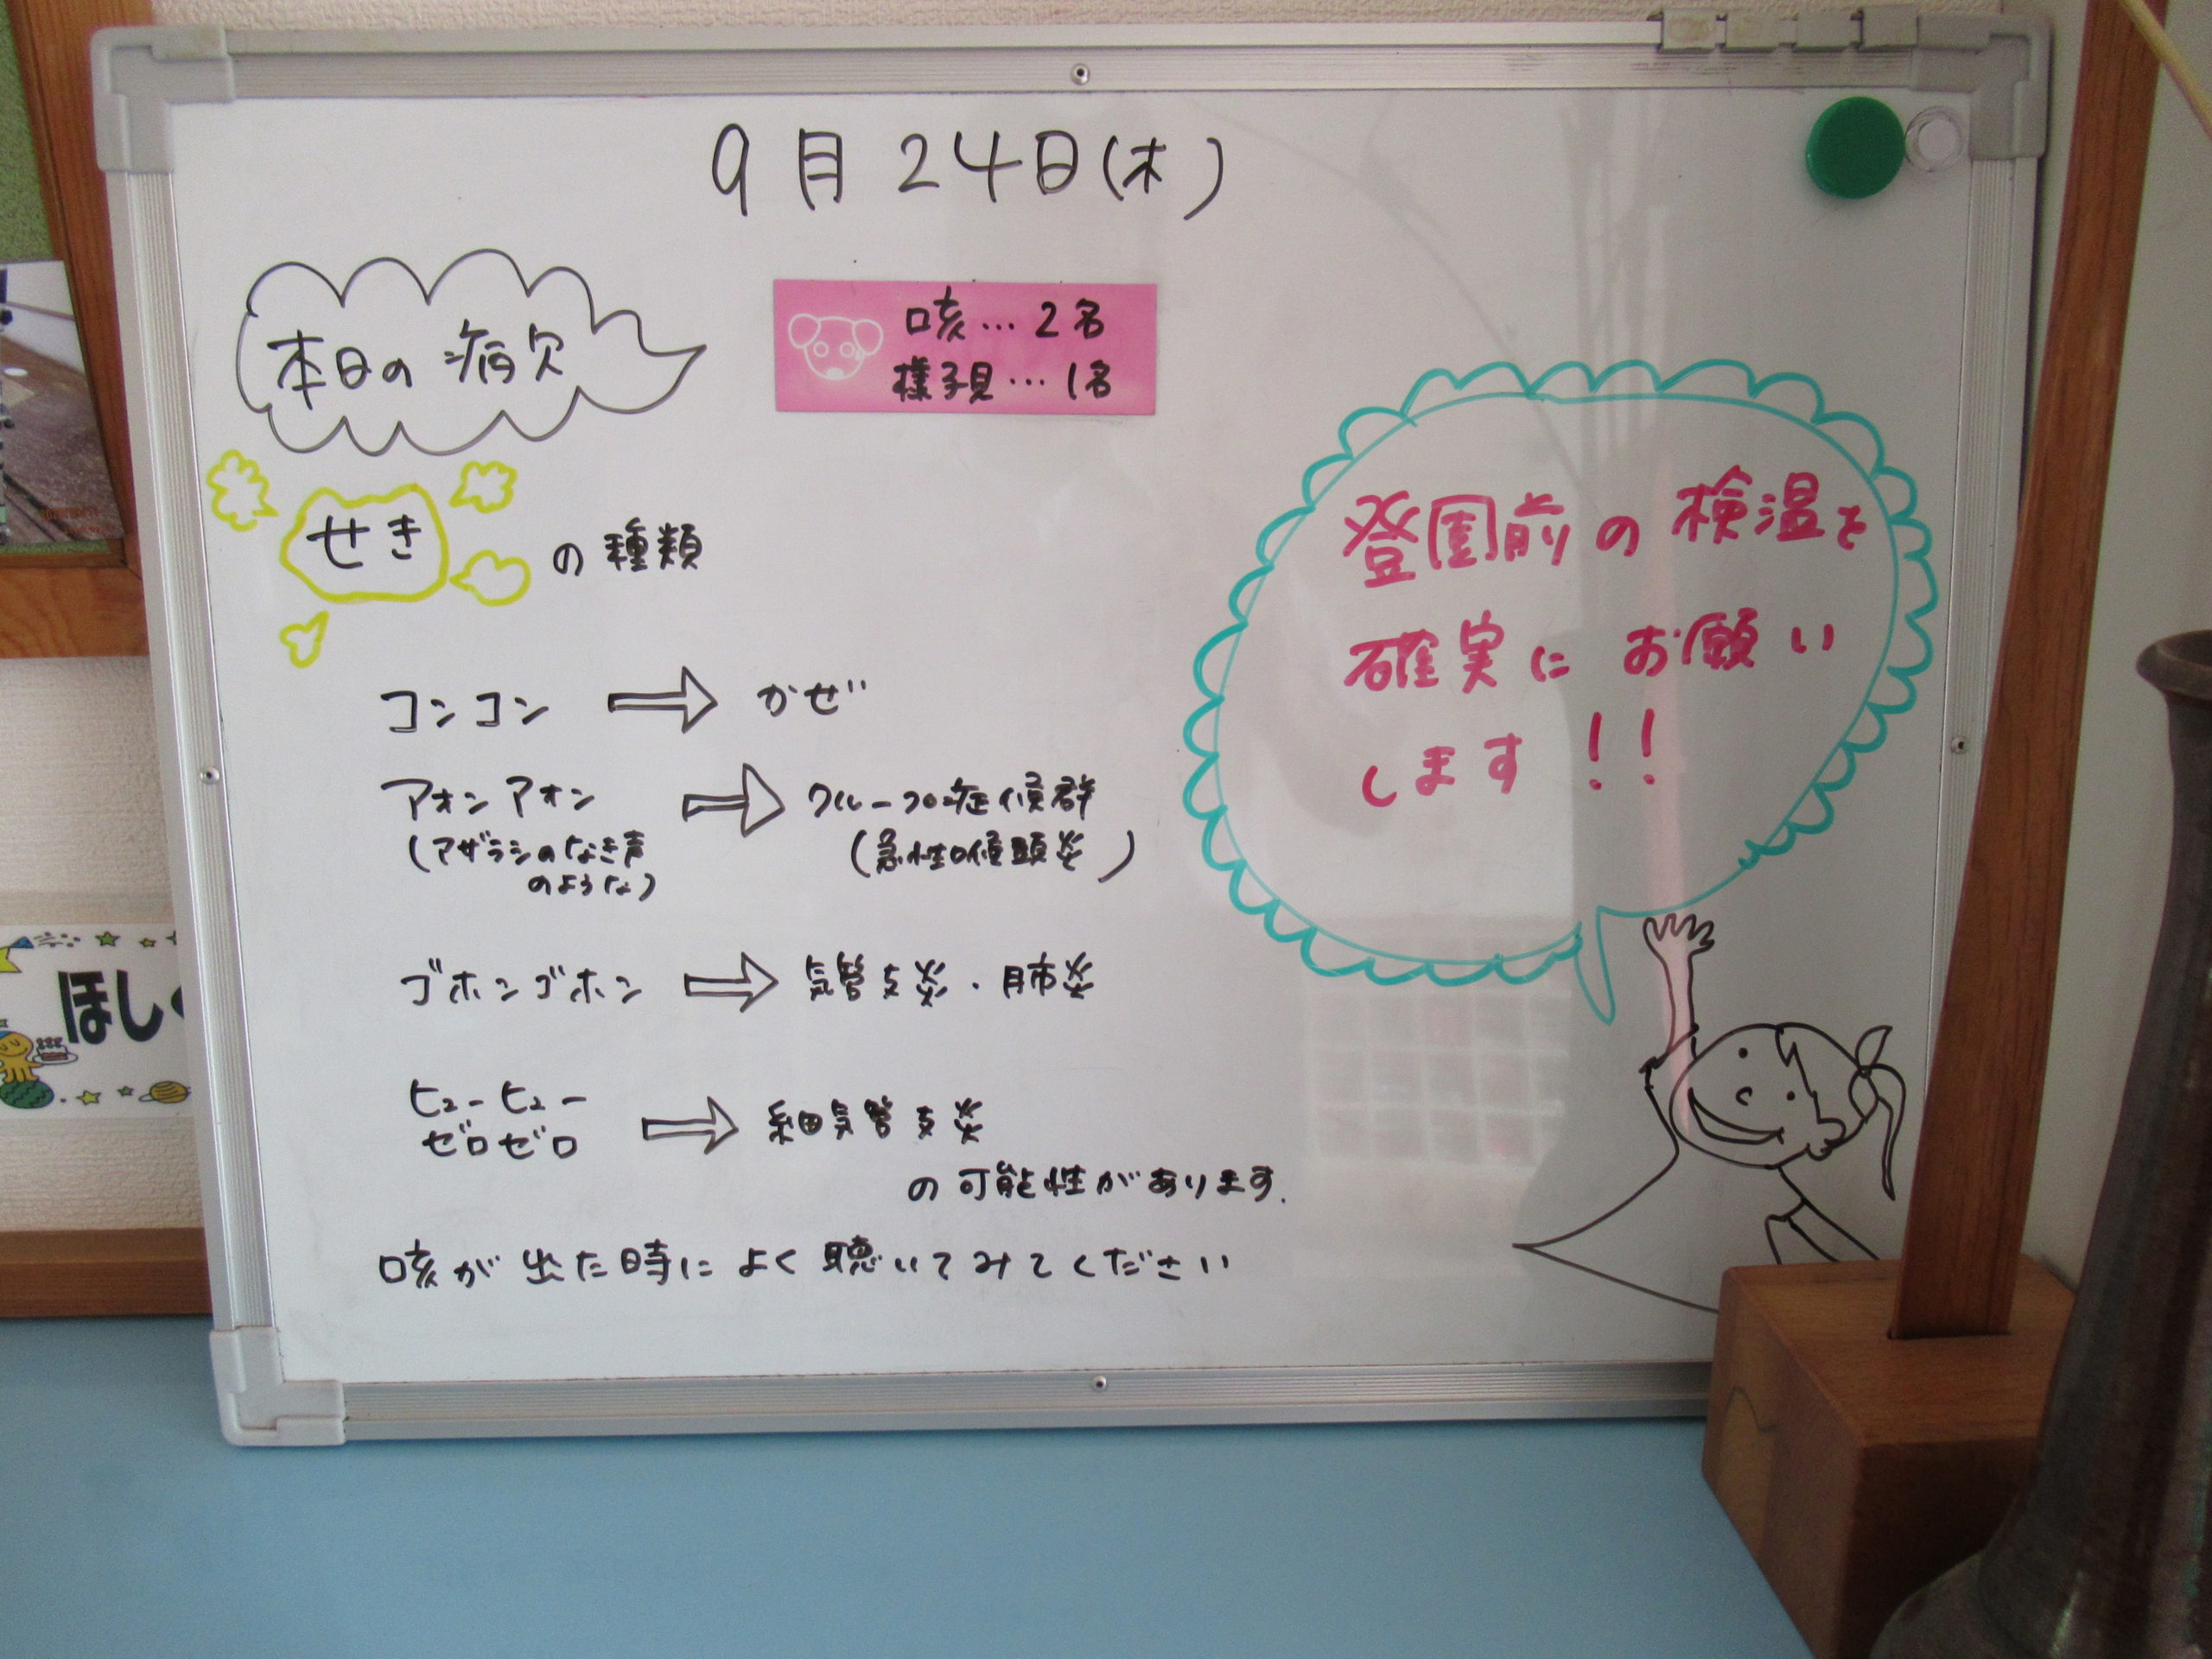 9月24日(木)
本日の病欠
咳…2名
様子見…1名
せきの種類
コンコン ⇒ かぜ
アオンアオン ⇒ クループ症候群
(アザラシのなき声
のような)
(急性喉頭炎)
ゴホンゴホン ⇒ 気管支炎・肺炎
ヒューヒュー
ゼロゼロ ⇒ 細気管支炎
の可能性があります.
咳が出た時によく聴いてみてください
登園前の検温を
確実にお願い
します!!
ほし